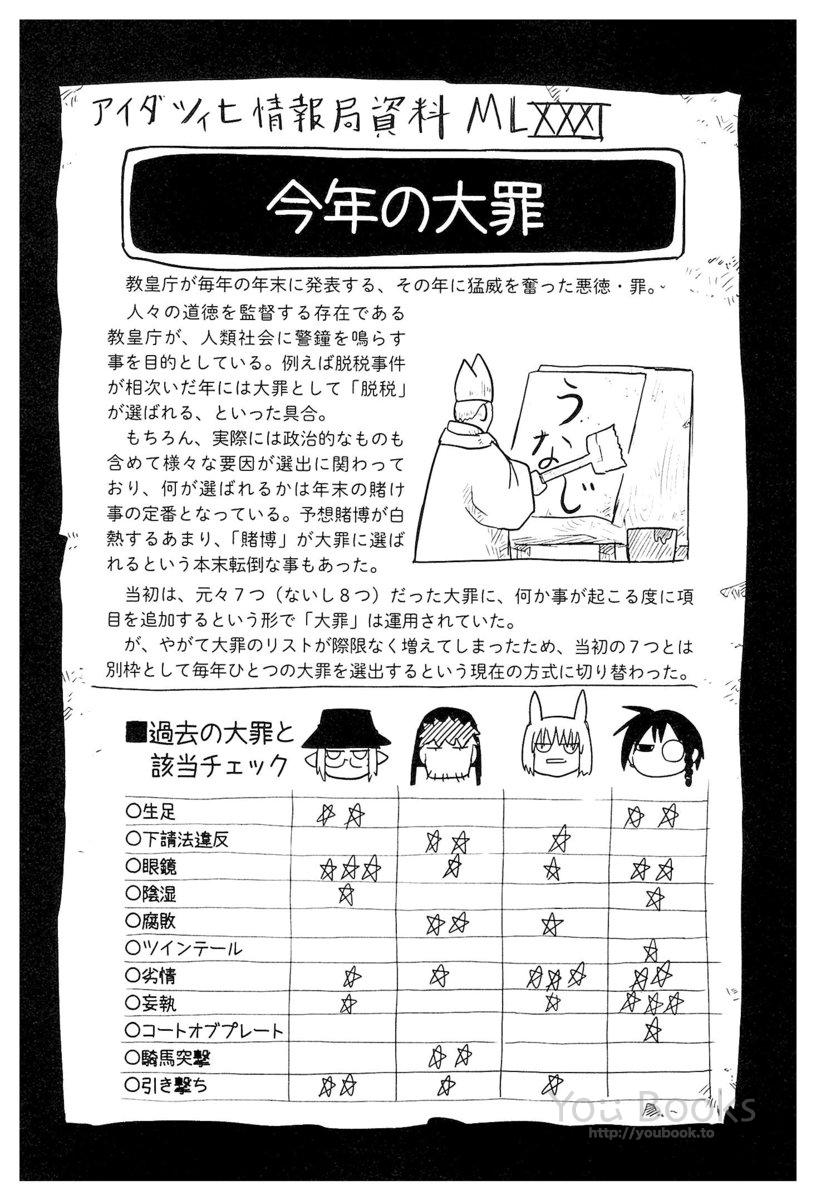 アイダツィヒ情報局資料 MLXXXI
今年の大罪
教皇庁が毎年の年末に発表する、その年に猛威を奮った悪徳・罪。
人々の道徳を監督する存在である
教皇庁が、人類社会に警鐘を鳴らす
事を目的としている。例えば脱税事件
が相次いだ年には大罪として「脱税」
が選ばれる、といった具合。
もちろん、実際には政治的なものも
含めて様々な要因が選出に関わって
おり、何が選ばれるかは年末の賭け
事の定番となっている。予想賭博が白
熱するあまり、「賭博」が大罪に選ば
れるという本末転倒な事もあった。
うなじ
当初は、元々７つ（ないし８つ）だった大罪に、何か事が起こる度に項
目を追加するという形で「大罪」は運用されていた。
が、やがて大罪のリストが際限なく増えてしまったため、当初の７つとは
別枠として毎年ひとつの大罪を選出するという現在の方式に切り替わった。
■過去の大罪と
該当チェック
○生足 ☆☆ ☆☆
○下請法違反 ☆☆ ☆
○眼鏡 ☆☆☆ ☆ ☆ ☆☆
○陰湿 ☆ ☆
○腐敗 ☆☆ ☆
○ツインテール ☆
○劣情 ☆ ☆ ☆☆☆ ☆☆
○妄執 ☆ ☆ ☆☆☆
○コートオブプレート ☆
○騎馬突撃 ☆☆
○引き撃ち ☆☆ ☆ ☆
You Books
http://youbook.to